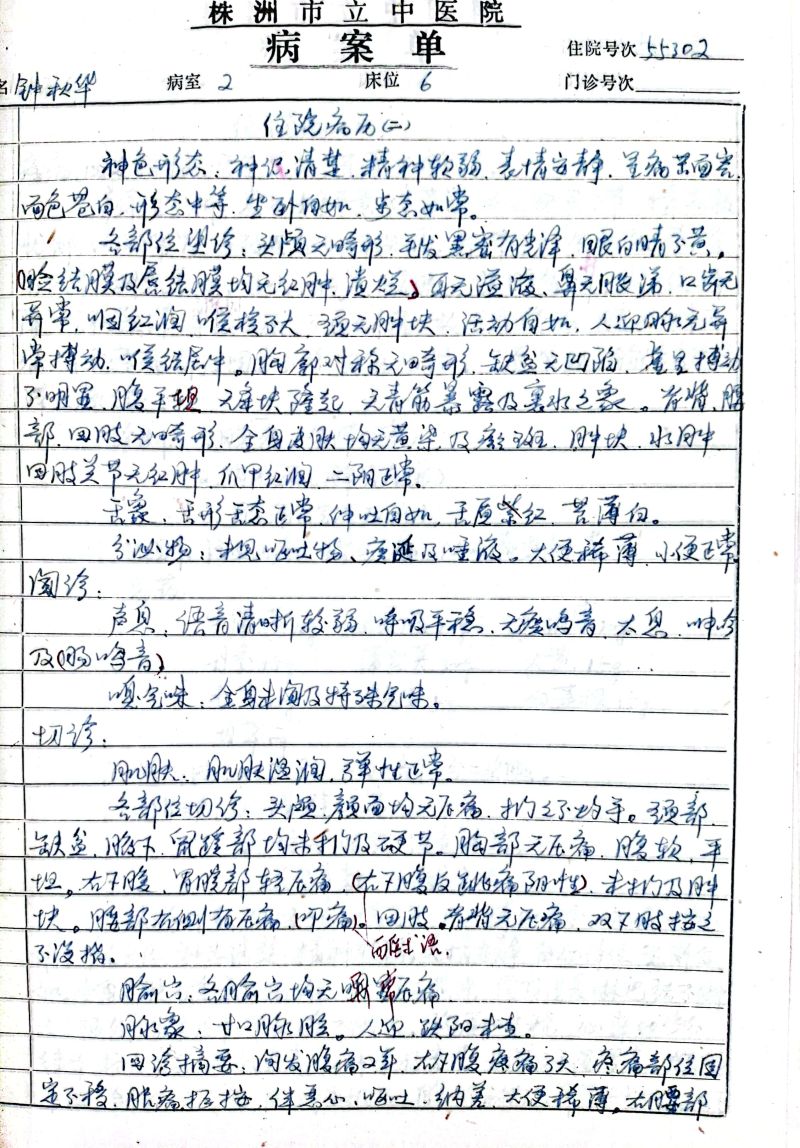 株洲市立中医院
病案单
住院号次 55302
名 钟秋华 病室 2 床位 6 门诊号次
住院病历(二)
神色形态：神识清楚、精神软弱、表情安静、呈病苦面容、
面色苍白、形态中等、坐卧自如、步态如常。
各部位望诊：头颅无畸形、毛发黑密有光泽、眼白睛不黄。
(睑结膜及唇结膜均无红肿、溃烂)、耳无溢液、鼻无脓涕、口唇无
异常、咽红润、喉核不大、颈无肿块、活动自如、人迎脉无异
常搏动、喉结居中。胸廓对称无畸形、缺盆无凹陷、虚里搏动
不明显、腹平坦、无垒块隆起、无青筋暴露及裹水之象。脊背、腰
部、四肢无畸形、全身皮肤均无黄染及瘀斑、肿块、水肿
四肢关节无红肿、爪甲红润、二阴正常。
舌象：舌形舌态正常、伸吐自如、舌质紫红、苔薄白。
分泌物：未见呕吐物、痰涎及唾液。大便稀薄、小便正常
闻诊：
声息：语音清晰较弱、呼吸平稳、无痰鸣音、太息、呻吟
及(肠鸣音)
嗅气味：全身未闻及特殊气味。
切诊：
肌肤：肌肤温润、弹性正常。
各部位切诊：头颅、颜面均无压痛、扪之不灼手。颈部、
缺盆、腋下、鼠蹊部均未扪及硬节。胸部无压痛、腹软、平
坦。右下腹、胃脘部轻压痛、(右下腹反跳痛阴性)、未扪及肿
块。腰部右侧有压痛、(叩痛)。四肢、脊背无压痛、双下肢按之
不没指。
西医术语.
腧穴：各腧穴均无压痛
脉象：寸口脉弦。人迎、趺阳未查。
四诊摘要：间发腹痛2年、右下腹疼痛3天、疼痛部位固
定不移、胀痛拒按、伴恶心、呕吐、纳差、大便稀薄。右腰部